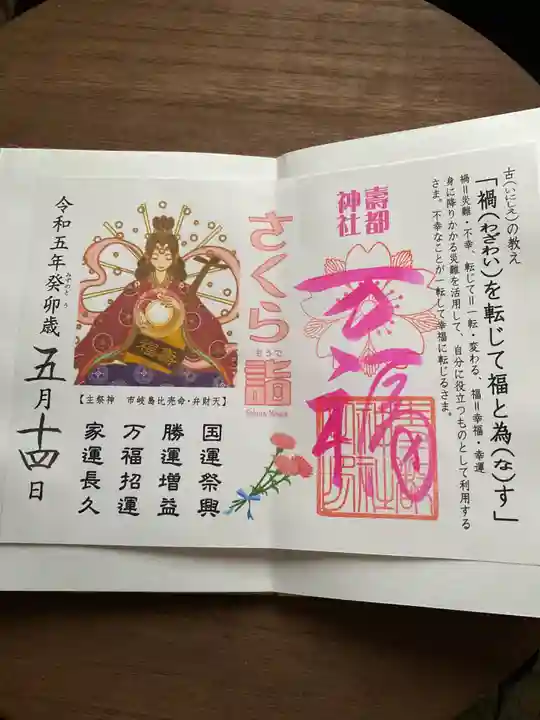 古(いにしえ)の教え
「禍(わざわい)を転じて福と為(な)す」
禍=災難・不幸、転じて=一転・変わる、福=幸福・幸運
身に降りかかる災難を活用して、自分に役立つものとして利用する
さま。不幸なことが一転して幸福に転じるさま。
壽都
神社
万福
さくら詣
もうで
Sakura Moude
【主祭神 市岐島比売命・弁財天】
国運祭興
勝運増益
万福招運
家運長久
令和五年癸卯歳 五月十四日
みずのとう